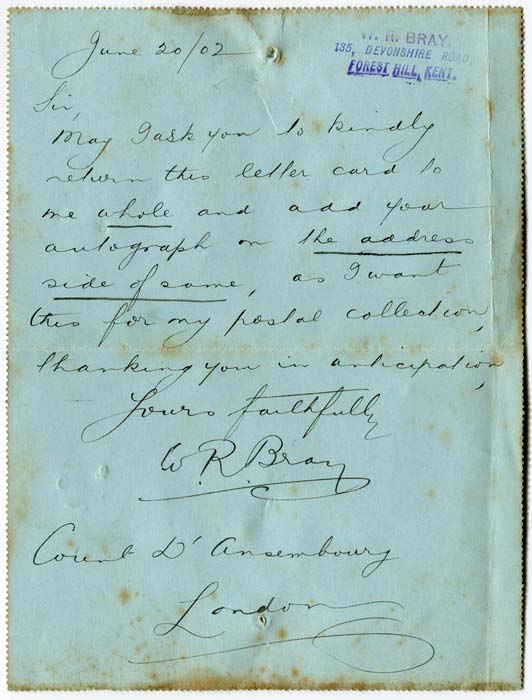 June 20/02
W. R. BRAY,
135, DEVONSHIRE ROAD,
FOREST HILL, KENT.
Sir,
May I ask you to kindly
return this letter card to
me whole and add your
autograph on the address
side of same, as I want
this for my postal collection,
thanking you in anticipation,
Yours faithfully
W. R. Bray
Count D'Ansembourg
London